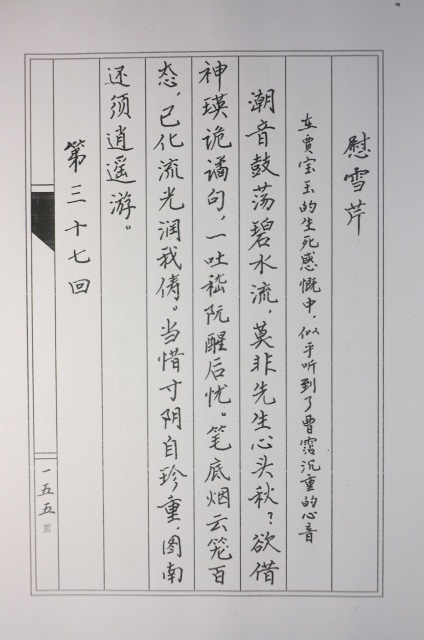 慰雪芹
在賈宝玉的生死感慨中，似乎听到了曹霑沉重的心音
潮音鼓荡碧水流，莫非先生心头秋？欲借
神瑛诡谲句，一吐嵇阮醒后忧。笔底烟云笼百
态，已化流光润我俦。当惜寸阴自珍重，图南
还须逍遥游。
第三十七回
一五五页